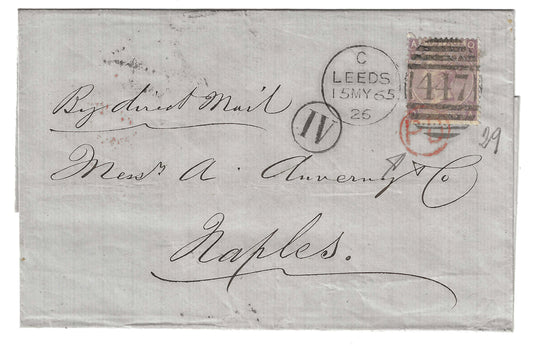 C
LEEDS
15 MY 65
26
447
A Q
By direct Mail
IV
PD
29
Messrs A. Auverny & Co
Naples.